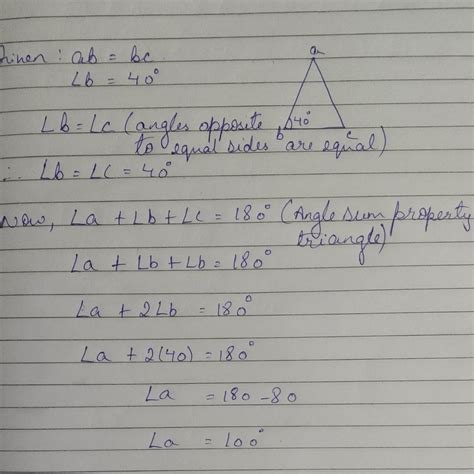 Given: ab = bc
∠b = 40°
a
40°
b
c
∠b = ∠c (angles opposite
to equal sides are equal)
∴ ∠b = ∠c = 40°
Now, ∠a + ∠b + ∠c = 180° (Angle sum property
triangle)
∠a + ∠b + ∠b = 180°
∠a + 2∠b = 180°
∠a + 2(40) = 180°
∠a = 180 - 80
∠a = 100°